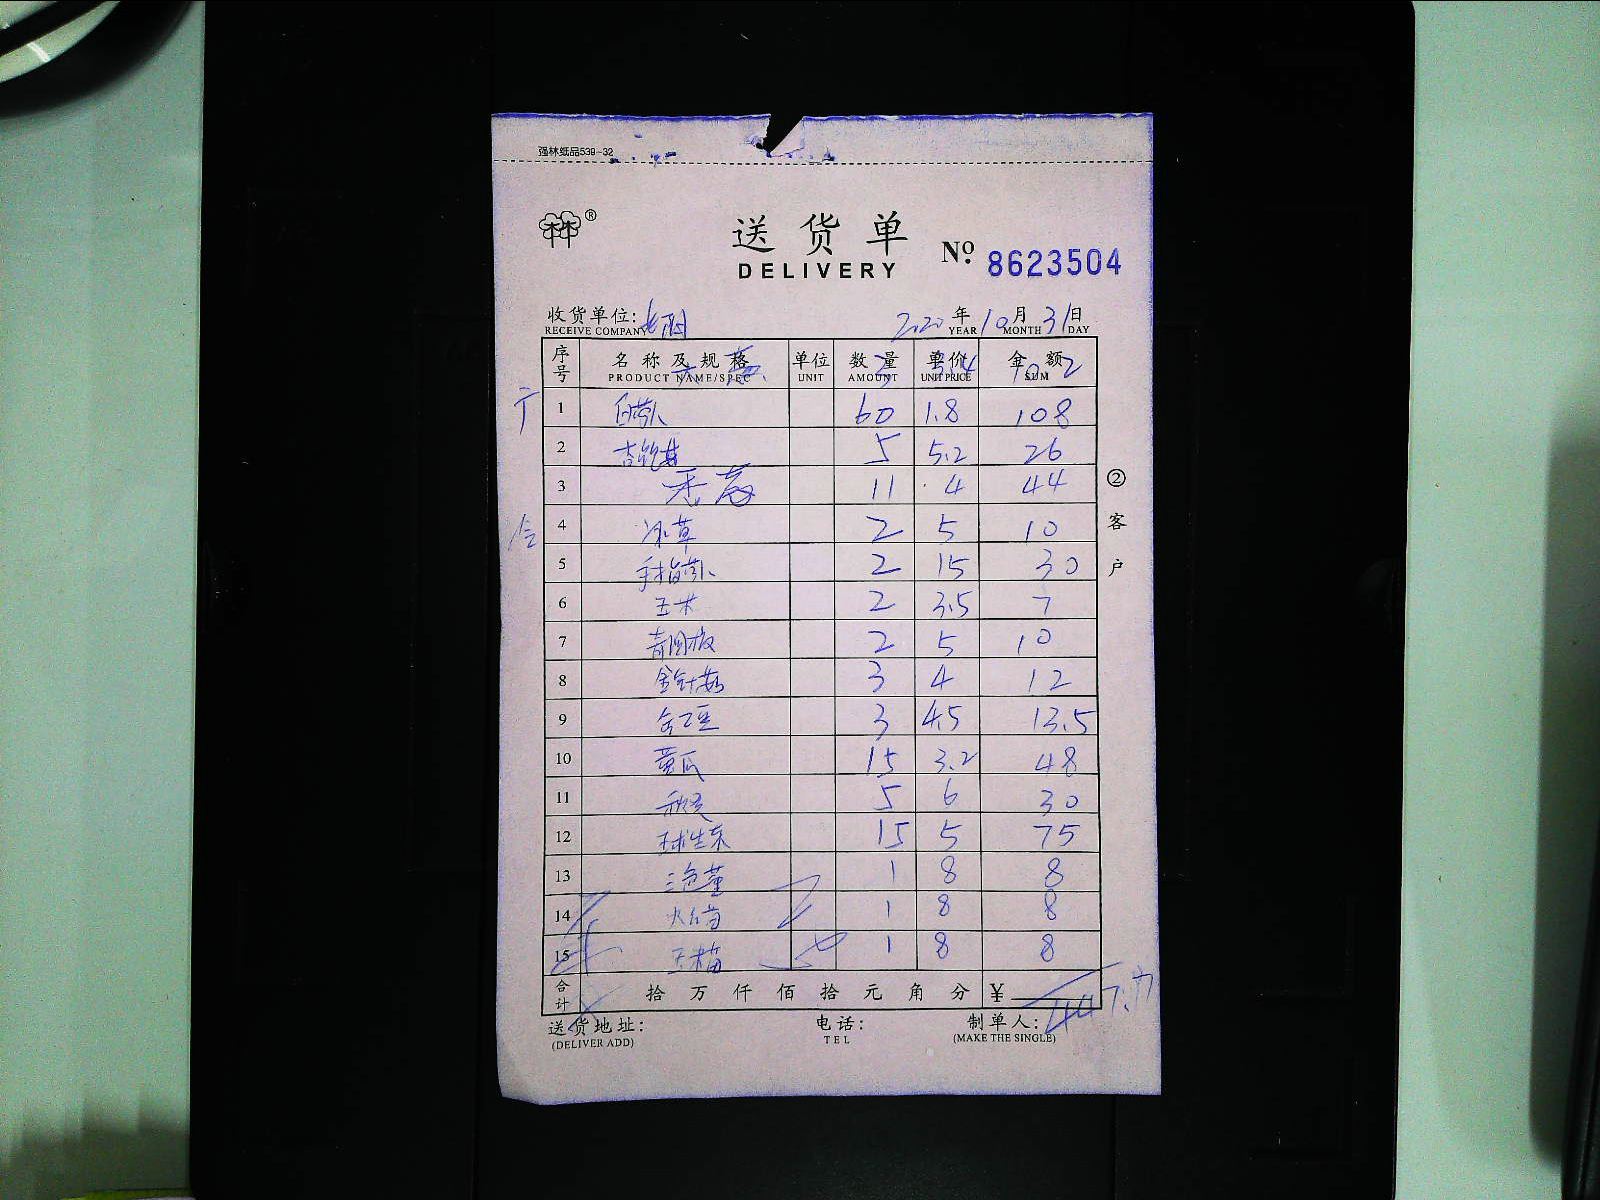 强林纸品539-32
林®
送货单
DELIVERY
No. 8623504
收货单位: 2020年10月31日
RECEIVE COMPANY YEAR MONTH DAY
序号 名称及规格 单位 数量 单价 金额
PRODUCT NAME/SPEC UNIT AMOUNT UNIT PRICE SUM
大葱 3 3.4 10.2
1 白萝卜 60 1.8 108
2 杏鲍菇 5 5.2 26
3 香菜 11 4 44
4 冰草 2 5 10
5 手指萝卜 2 15 30
6 玉米 2 3.5 7
7 青圆椒 2 5 10
8 金针菇 3 4 12
9 3 4.5 13.5
10 黄瓜 15 3.2 48
11 秋葵 5 6 30
12 球生菜 15 5 75
13 三色堇 1 8 8
14 1 8 8
15 玉米苗 1 8 8
合计 拾万仟佰拾元角分 ¥ 447.7
②客户
送货地址: 电话: 制单人:
(DELIVER ADD) TEL (MAKE THE SINGLE)